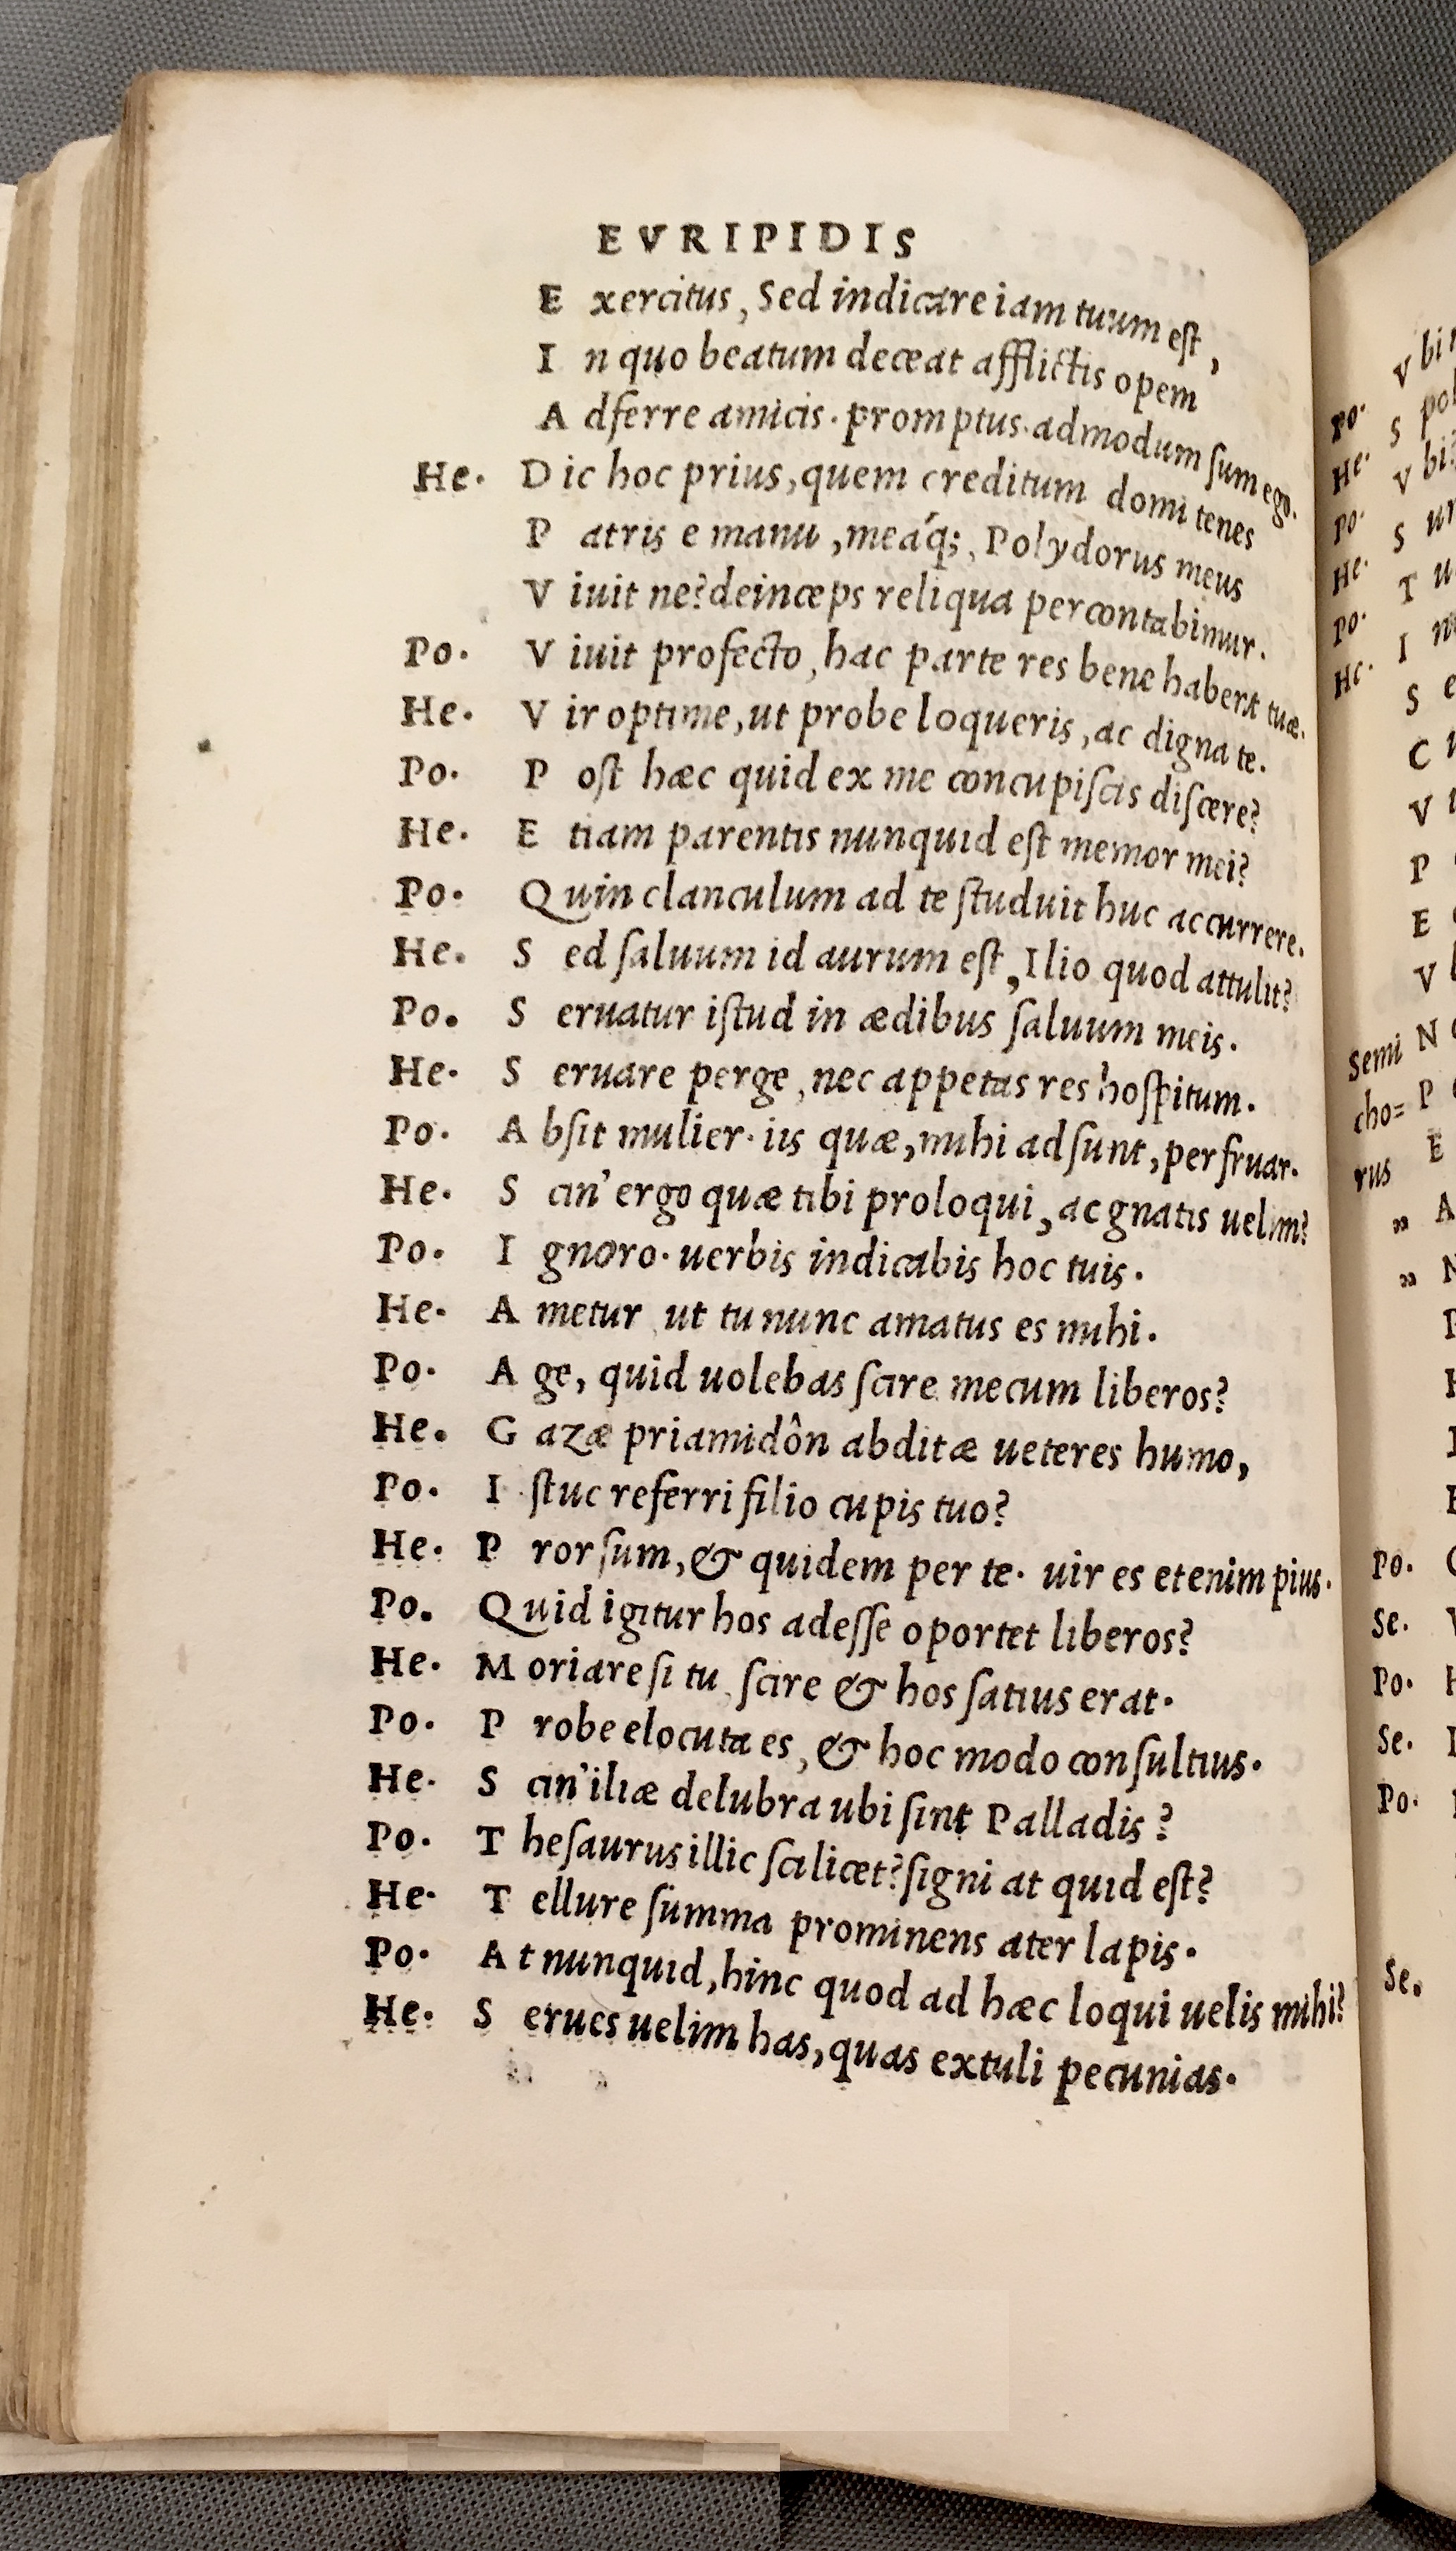 EVRIPIDIS
E xercitus, Sed indicare iam tuum eſt,
I n quo beatum deceat afflictis opem
A dferre amicis. promptus admodum ſum ego.
He. D ic hoc prius, quem creditum domi tenes
P atris e manu, meáq;, Polydorus meus
V iuit ne? deinceps reliqua percontabimur.
Po. V iuit profecto, hac parte res bene habent tuæ.
He. V ir optime, ut probe loqueris, ac digna te.
Po. P oſt hæc quid ex me concupiſcis diſcere?
He. E tiam parentis nunquid eſt memor mei?
Po. Q uin clanculum ad te ſtuduit huc accurrere.
He. S ed ſaluum id aurum eſt, Ilio quod attulit?
Po. S eruatur iſtud in ædibus ſaluum meis.
He. S eruare perge, nec appetas res hoſpitum.
Po. A bſit mulier. iis quæ, mihi adſunt, perfruar.
He. S cin' ergo quæ tibi proloqui, ac gnatis uelim?
Po. I gnoro. uerbis indicabis hoc tuis.
He. A metur, ut tu nunc amatus es mihi.
Po. A ge, quid uolebas ſcire mecum liberos?
He. G azæ priamidôn abditæ ueteres humo,
Po. I ſtuc referri filio cupis tuo?
He. P rorſum, & quidem per te. uir es etenim pius.
Po. Q uid igitur hos adeſſe oportet liberos?
He. M oriare ſi tu, ſcire & hos ſatius erat.
Po. P robe elocuta es, & hoc modo conſultius.
He. S cin' iliæ delubra ubi ſint Palladis?
Po. T heſaurus illic ſcilicet? ſigni at quid eſt?
He. T ellure ſumma prominens ater lapis.
Po. A t nunquid, hinc quod ad hæc loqui uelis mihi?
He. S erues uelim has, quas extuli pecunias.
V bi
Po. S pol
He. V bi?
Po. S
He. T
Po. I
He. S
C
V
P
E
V
Semi N
cho= P
rus E
„ A
„ N
Po.
Se.
Po.
Se.
Po.
Se.